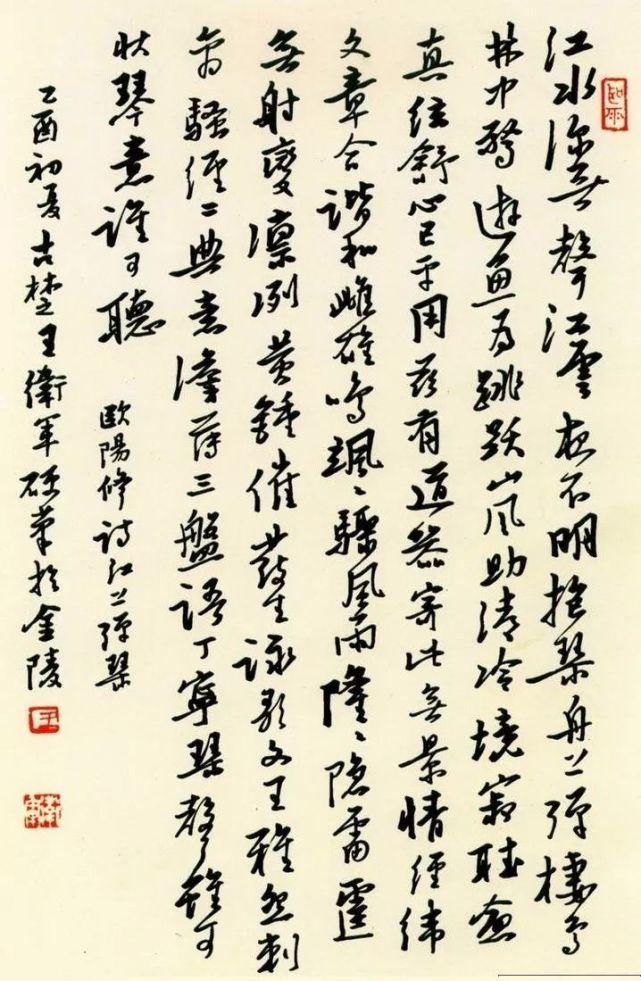 江水深無聲江雲夜不明抱琴舟上彈棲鳥
林中驚遊魚为跳跃山風助清冷境寂聽愈
真弦舒心已平用茲有道器寄此無景情經緯
文章合諧和雌雄鳴颯〻驟風雨隆〻隱雷霆
無射變凛冽黄鍾催發生詠歌文王雅怨刺
离騷經二典意澹薄三盤語丁寧琴聲雖可
狀琴意誰可聽 歐陽修詩江上彈琴
乙酉初夏古楚王衛軍筆於金陵
王